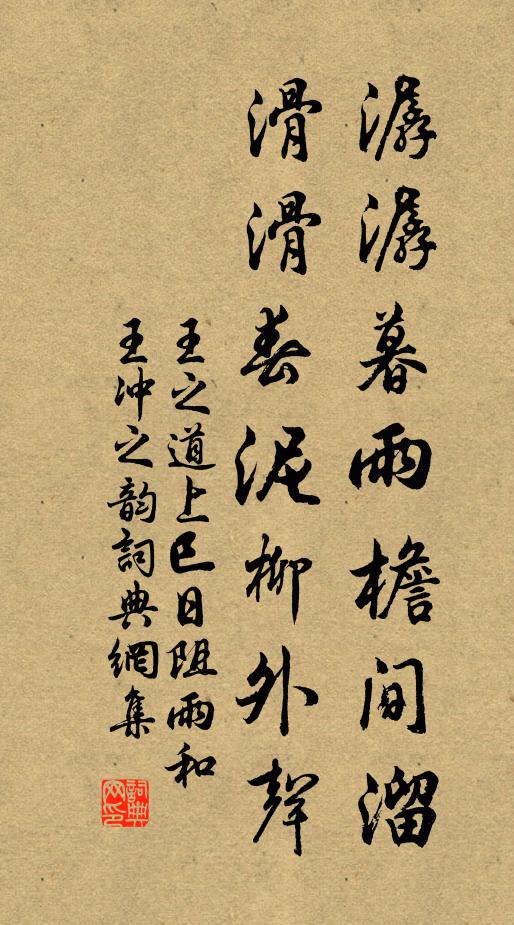 潺潺暮雨檐間溜
滑滑春泥柳外聲
王之道上巳日阻雨和
王冲之韵詞典網集
詞典網印